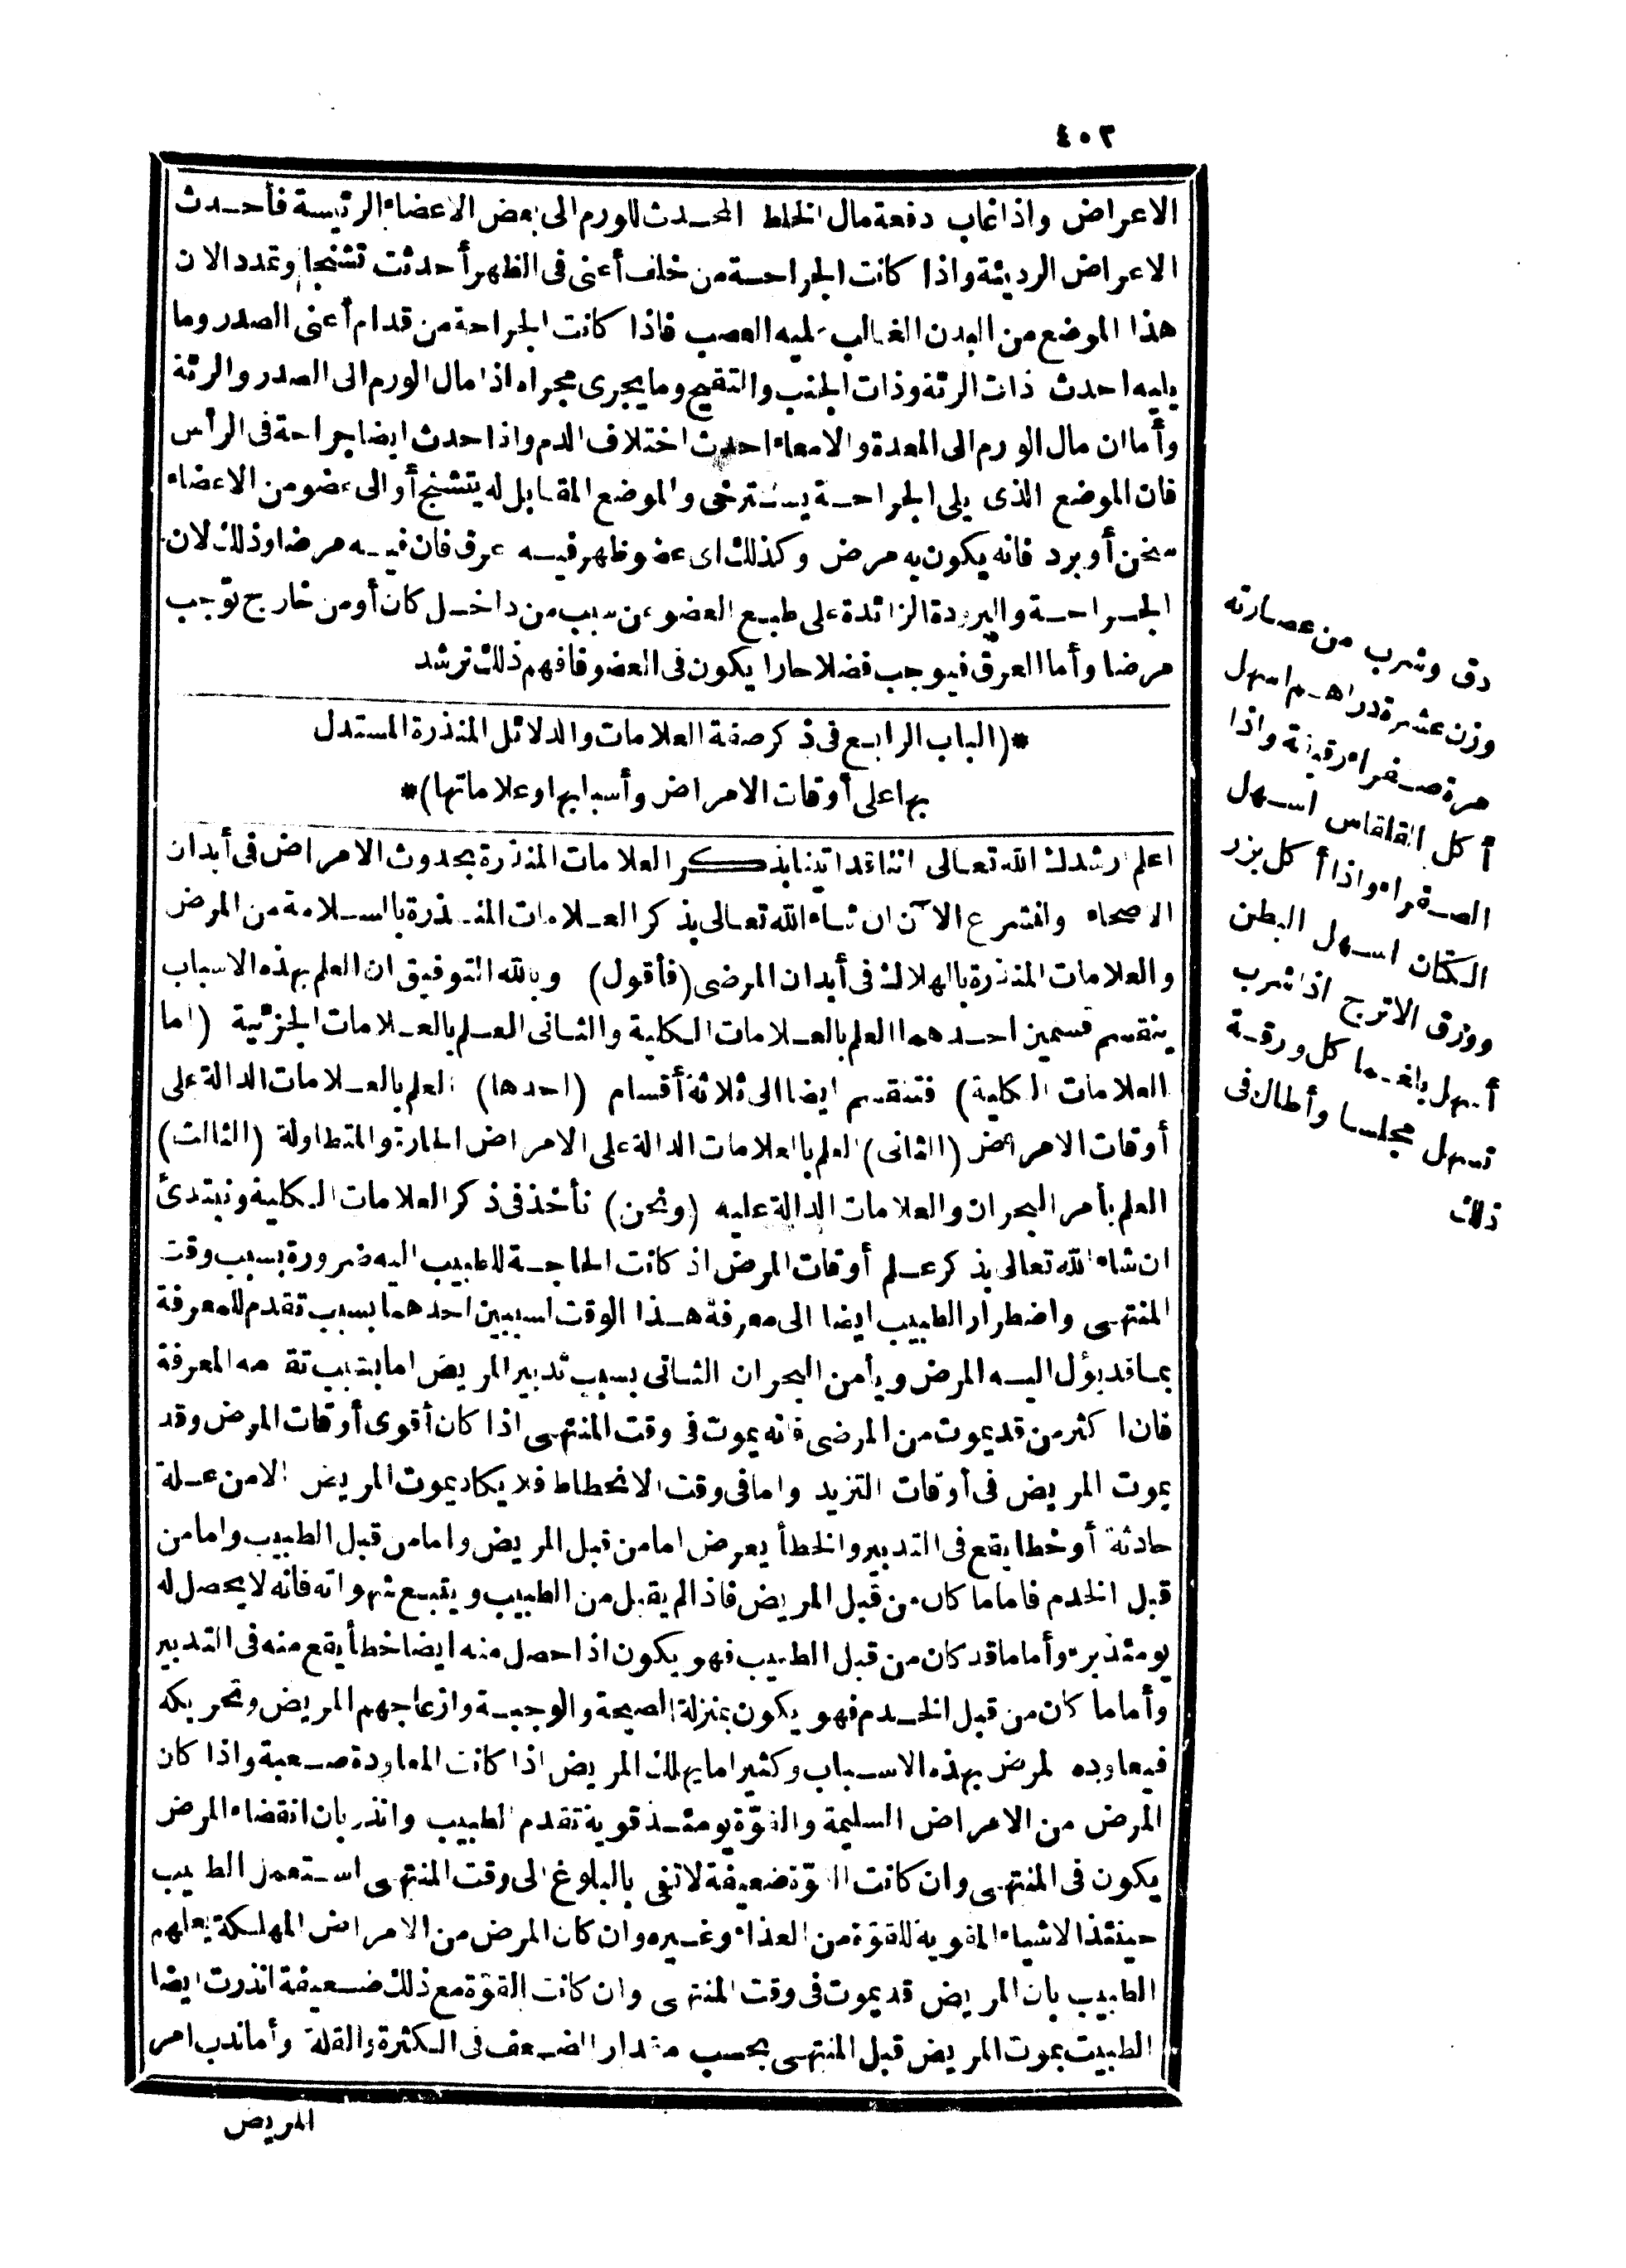 ٤٠٢
الاعراض واذا غاب دفعة مال الخلط المحدث للورم الى بعض الاعضاء الرئيسة فأحدث
الاعراض الرديئة واذا كانت الجراحة من خلف أعنى فى الظهر أحدثت تشنجا وتمددا لان
هذا الموضع من البدن الغالب عليه العصب فاذا كانت الجراحة من قدام أعنى الصدر وما
يليه احدث ذات الرئة وذات الجنب والتقيح وما يجرى مجراه اذا مال الورم الى الصدر والرئة
وأما ان مال الورم الى المعدة والامعاء احدث اختلاف الدم واذا حدث ايضا جراحة فى الرأس
فان الموضع الذى يلى الجراحة يسترخى والموضع المقابل له يتشنج أو الى عضو من الاعضاء
سخن أو برد فانه يكون به مرض وكذلك اى عضو ظهر فيه عرق فان فيه مرضا وذلك لان
الجراحة والبرودة الزائدة على طبع العضو عن سبب من داخل كان أو من خارج توجب
مرضا وأما العرق فيوجب فضلا حارا يكون فى العضو فافهم ذلك ترشد
*(الباب الرابع فى ذكر صفة العلامات والدلائل المنذرة المستدل
بها على أوقات الامراض وأسبابها وعلاماتها)*
اعلم ارشدك الله تعالى اننا قد اتينا بذكر العلامات المنذرة بحدوث الامراض فى أبدان
الاصحاء ولنشرع الآن ان شاء الله تعالى بذكر العلامات المنذرة بالسلامة من المرض
والعلامات المنذرة بالهلاك فى أبدان المرضى (فأقول) وبالله التوفيق ان العلم بهذه الاسباب
ينقسم قسمين احدهما العلم بالعلامات الكلية والثانى العلم بالعلامات الجزئية (اما
العلامات الكلية) فتنقسم ايضا الى ثلاثة أقسام (احدها) العلم بالعلامات الدالة على
أوقات الامراض (الثانى) العلم بالعلامات الدالة على الامراض الحارة والمتطاولة (الثالث)
العلم بأمر البحران والعلامات الدالة عليه (ونحن) نأخذ فى ذكر العلامات الكلية ونبتدئ
ان شاء الله تعالى بذكر علم أوقات المرض اذ كانت الحاجة للطبيب اليه ضرورة بسبب وقت
المنتهى واضطرار الطبيب ايضا الى معرفة هذا الوقت لسببين احدهما بسبب تقدم للمعرفة
بما قد يؤل اليه المرض ويأمن البحران الثانى بسبب تدبير المريض اما بسبب تقدمه المعرفة
فان اكثر من قد يموت من المرضى فانه يموت فى وقت المنتهى اذا كان أقوى أوقات المرض وقد
يموت المريض فى أوقات التزيد واما فى وقت الانحطاط فلا يكاد يموت المريض الا من علة
حادثة أو خطا يقع فى التدبير والخطأ يعرض اما من قبل المريض واما من قبل الطبيب واما من
قبل الخدم فاما ما كان من قبل المريض فاذا لم يقبل من الطبيب ويتبع شهواته فانه لا يحصل له
يومئذ برء وأما ما قد كان من قبل الطبيب فهو يكون اذا حصل منه ايضا خطأ يقع منه فى التدبير
وأما ما كان من قبل الخدم فهو يكون بمنزلة الصيحة والوجبة وازعاجهم المريض وتحريكه
فيعاوده المرض بهذه الاسباب وكثيرا ما يهلك المريض اذا كانت المعاودة صعبة واذا كان
المرض من الاعراض السليمة والقوّة يومئذ قوية تقدم الطبيب وانذر بان انقضاء المرض
يكون فى المنتهى وان كانت القوّة ضعيفة لا تفى بالبلوغ الى وقت المنتهى استعمل الطبيب
حينئذ الاشياء المقوية للقوّة من الغذاء وغيره وان كان المرض من الامراض المهلكة يعلمهم
الطبيب بان المريض قد يموت فى وقت المنتهى وان كانت القوّة مع ذلك ضعيفة انذرت ايضا
الطبيت بموت المريض قبل المنتهى بحسب مقدار الضعف فى الكثرة والقلة وأما ندب امر
المريض
دق وشرب من عصارته
وزن عشرة دراهم اسهل
مرة صفراء رقيقة واذا
أكل القلقاس اسهل
الصفراء واذا أكل بزر
الكتان اسهل البطن
وورق الاترج اذا شرب
أسهل بلغما كل ورقة
تسهل مجلسا وأطال فى
ذلك